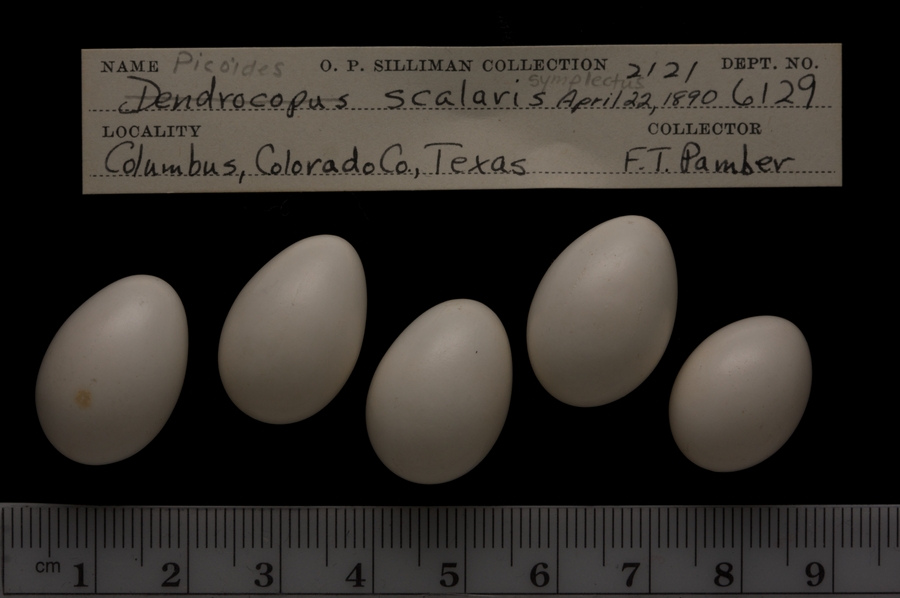 NAME Picoides O. P. SILLIMAN COLLECTION 2121 DEPT. NO.
Dendrocopus scalaris symplectus April 22, 1890 6129
LOCALITY COLLECTOR
Columbus, Colorado Co., Texas F.T. Pamber
cm 1 2 3 4 5 6 7 8 9